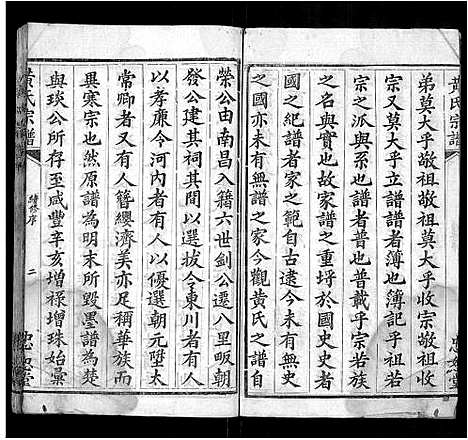 黄氏宗譜
弟莫大乎敬祖敬祖莫大乎收宗敬祖收
宗又莫大乎立譜譜者薄也薄記乎祖若
宗之派與系也譜者普也普載乎宗若族
之名與實也故大而擬於國史史者
國之紀譜者家之範自古逮今未有無史
之國亦未有無譜之家今觀黃氏之譜自
榮公由南昌入籍六世釗公遷八里畈朝
發公建其祠其間以選拔令東川者有人
以孝廉令河內者有人以優選朝元墮太
常卿者又有人簪纓濟美亦足稱華族而
異寒宗也然原譜為明末所毀墨譜為楚
與琰公所存至咸豐辛亥增祿增珠始彙
黃氏宗譜
續修序
二